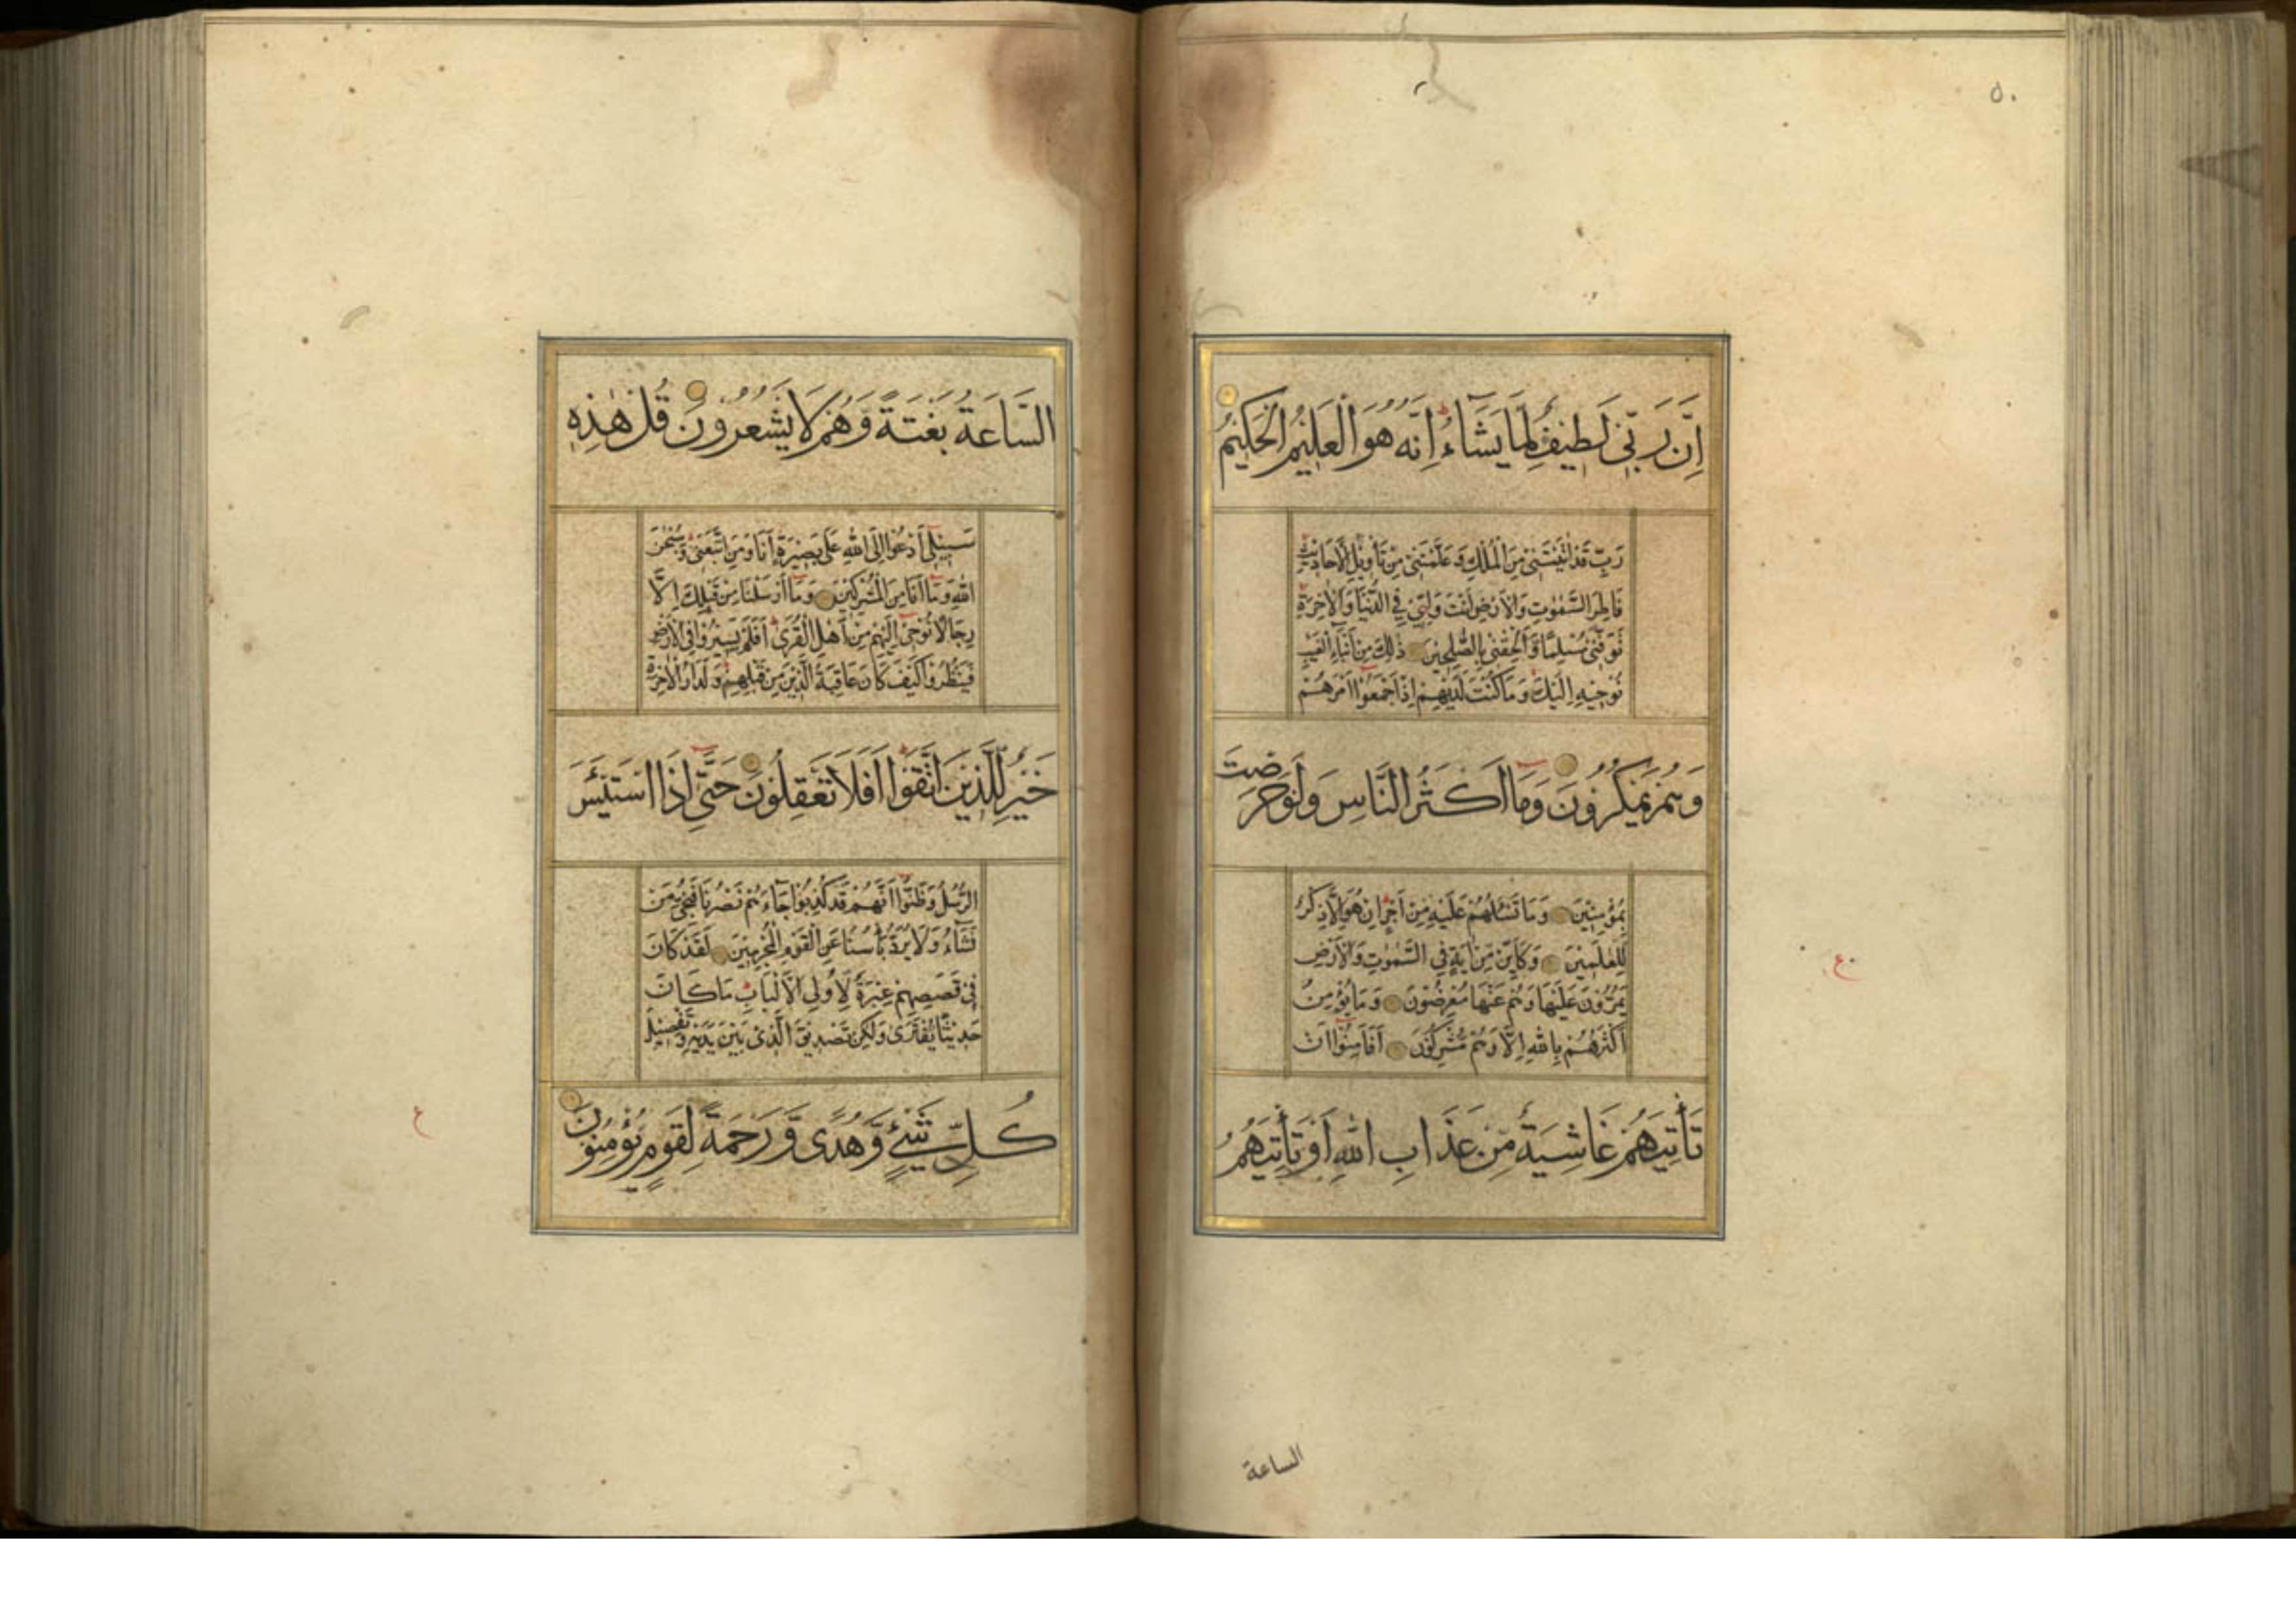 ٥٠
اِنَّ رَبّٖى لَطٖيفٌ لِمَا يَشَاۤءُ اِنَّهُ هُوَ الْعَلٖيمُ الْحَكٖيمُ
رَبِّ قَدْ اٰتَيْتَنٖى مِنَ الْمُلْكِ وَعَلَّمْتَنٖى مِنْ تَأْوٖيلِ الْاَحَادٖيثِ
فَاطِرَ السَّمٰوٰتِ وَالْاَرْضِ اَنْتَ وَلِيّٖ فِى الدُّنْيَا وَالْاٰخِرَةِ
تَوَفَّنٖى مُسْلِمًا وَّاَلْحِقْنٖى بِالصّٰلِحٖينَ ذٰلِكَ مِنْ اَنْبَاۤءِ الْغَيْبِ
نُوحٖيهِ اِلَيْكَ وَمَا كُنْتَ لَدَيْهِمْ اِذْ اَجْمَعُوۤا اَمْرَهُمْ
وَهُمْ يَمْكُرُونَ وَمَاۤ اَكْثَرُ النَّاسِ وَلَوْ حَرَصْتَ
بِمُؤْمِنٖينَ وَمَا تَسْـَٔلُهُمْ عَلَيْهِ مِنْ اَجْرٍ اِنْ هُوَ اِلَّا ذِكْرٌ
لِلْعٰلَمٖينَ وَكَاَيِّنْ مِّنْ اٰيَةٍ فِى السَّمٰوٰتِ وَالْاَرْضِ
يَمُرُّونَ عَلَيْهَا وَهُمْ عَنْهَا مُعْرِضُونَ وَمَا يُؤْمِنُ
اَكْثَرُهُمْ بِاللّٰهِ اِلَّا وَهُمْ مُّشْرِكُونَ اَفَاَمِنُوۤا اَنْ
تَأْتِيَهُمْ غَاشِيَةٌ مِّنْ عَذَابِ اللّٰهِ اَوْ تَأْتِيَهُمُ
ع
الساعة
السَّاعَةُ بَغْتَةً وَّهُمْ لَا يَشْعُرُونَ قُلْ هٰذِهٖ
سَبٖيلٖۤى اَدْعُوۤا اِلَى اللّٰهِ عَلٰى بَصٖيرَةٍ اَنَا وَمَنِ اتَّبَعَنٖى وَسُبْحٰنَ
اللّٰهِ وَمَاۤ اَنَا مِنَ الْمُشْرِكٖينَ وَمَاۤ اَرْسَلْنَا مِنْ قَبْلِكَ اِلَّا
رِجَالًا نُّوحٖۤى اِلَيْهِمْ مِّنْ اَهْلِ الْقُرٰى اَفَلَمْ يَسٖيرُوا فِى الْاَرْضِ
فَيَنْظُرُوا كَيْفَ كَانَ عَاقِبَةُ الَّذٖينَ مِنْ قَبْلِهِمْ وَلَدَارُ الْاٰخِرَةِ
خَيْرٌ لِّلَّذٖينَ اتَّقَوْا اَفَلَا تَعْقِلُونَ حَتّٰۤى اِذَا اسْتَيْـَٔسَ
الرُّسُلُ وَظَنُّوۤا اَنَّهُمْ قَدْ كُذِبُوا جَاۤءَهُمْ نَصْرُنَا فَنُجِّىَ مَنْ
نَشَاۤءُ وَلَا يُرَدُّ بَأْسُنَا عَنِ الْقَوْمِ الْمُجْرِمٖينَ لَقَدْ كَانَ
فٖى قَصَصِهِمْ عِبْرَةٌ لِّاُولِى الْاَلْبَابِ مَا كَانَ
حَدٖيثًا يُّفْتَرٰى وَلٰكِنْ تَصْدٖيقَ الَّذٖى بَيْنَ يَدَيْهِ وَتَفْصٖيلَ
كُلِّ شَيْءٍ وَّهُدًى وَّرَحْمَةً لِّقَوْمٍ يُّؤْمِنُونَ
ع